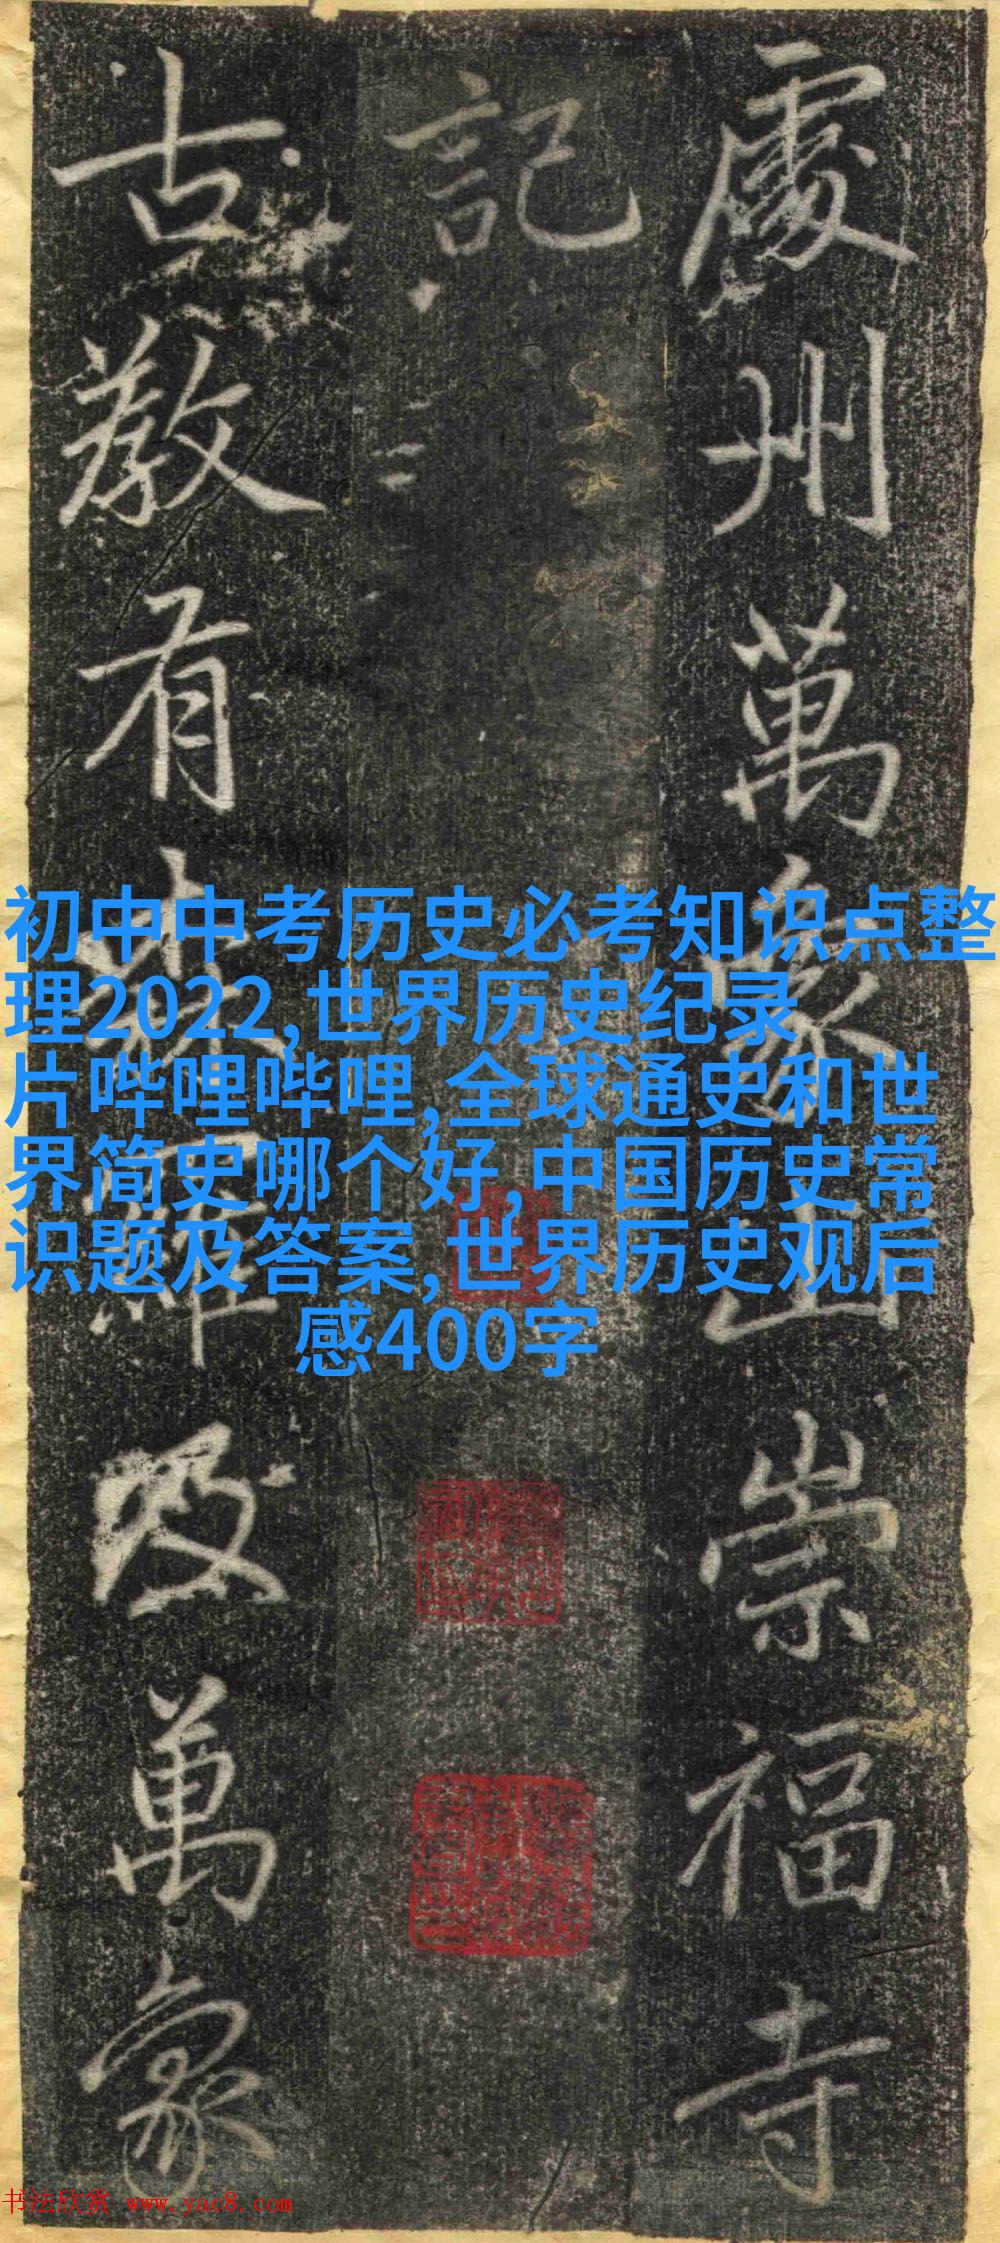 處州萬象山崇福寺
記
古教有羅及萬象
初中中考历史必考知识点整
理2022,世界历史纪录
片哔哩哔哩,全球通史和世
界简史哪个好,中国历史常
识题及答案,世界历史观后
感400字
书法欣赏 www.yac8.com